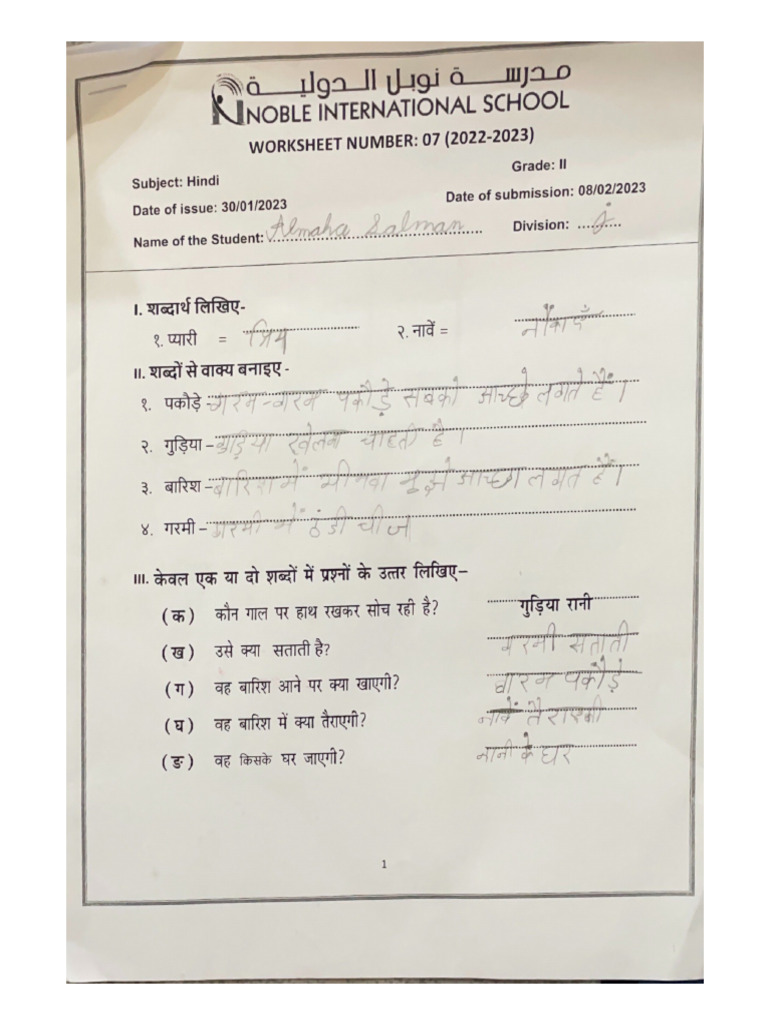 مدرســـة نوبل الــدوليــة
NOBLE INTERNATIONAL SCHOOL
WORKSHEET NUMBER: 07 (2022-2023)
Subject: Hindi Grade: II
Date of issue: 30/01/2023 Date of submission: 08/02/2023
Name of the Student: Almaha Salman Division: j
I. शब्दार्थ लिखिए-
१. प्यारी = प्रिय २. नावें = नौंकाएँ
II. शब्दों से वाक्य बनाइए -
१. पकौड़े - गरम-गरम पकौड़े सबको आच्छे लगते हैं।
२. गुड़िया - गुड़िया खेलना चाहती है।
३. बारिश - बारिश में भीगना मुझे आच्छा लगत हैं।
४. गरमी - गरमी में ठंडी चीज
III. केवल एक या दो शब्दों में प्रश्नों के उत्तर लिखिए-
(क) कौन गाल पर हाथ रखकर सोच रही है? गुड़िया रानी
(ख) उसे क्या सताती है? गरमी सताती
(ग) वह बारिश आने पर क्या खाएगी? गरम पकौड़े
(घ) वह बारिश में क्या तैराएगी? नावें तैराएगी
(ङ) वह किसके घर जाएगी? नानी के घर
1